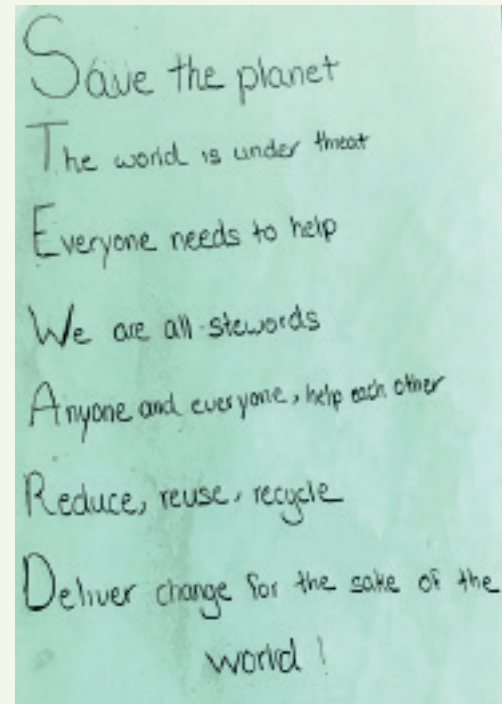 Save the planet
The world is under threat
Everyone needs to help
We are all stewards
Anyone and everyone, help each other
Reduce, reuse, recycle
Deliver change for the sake of the
world!